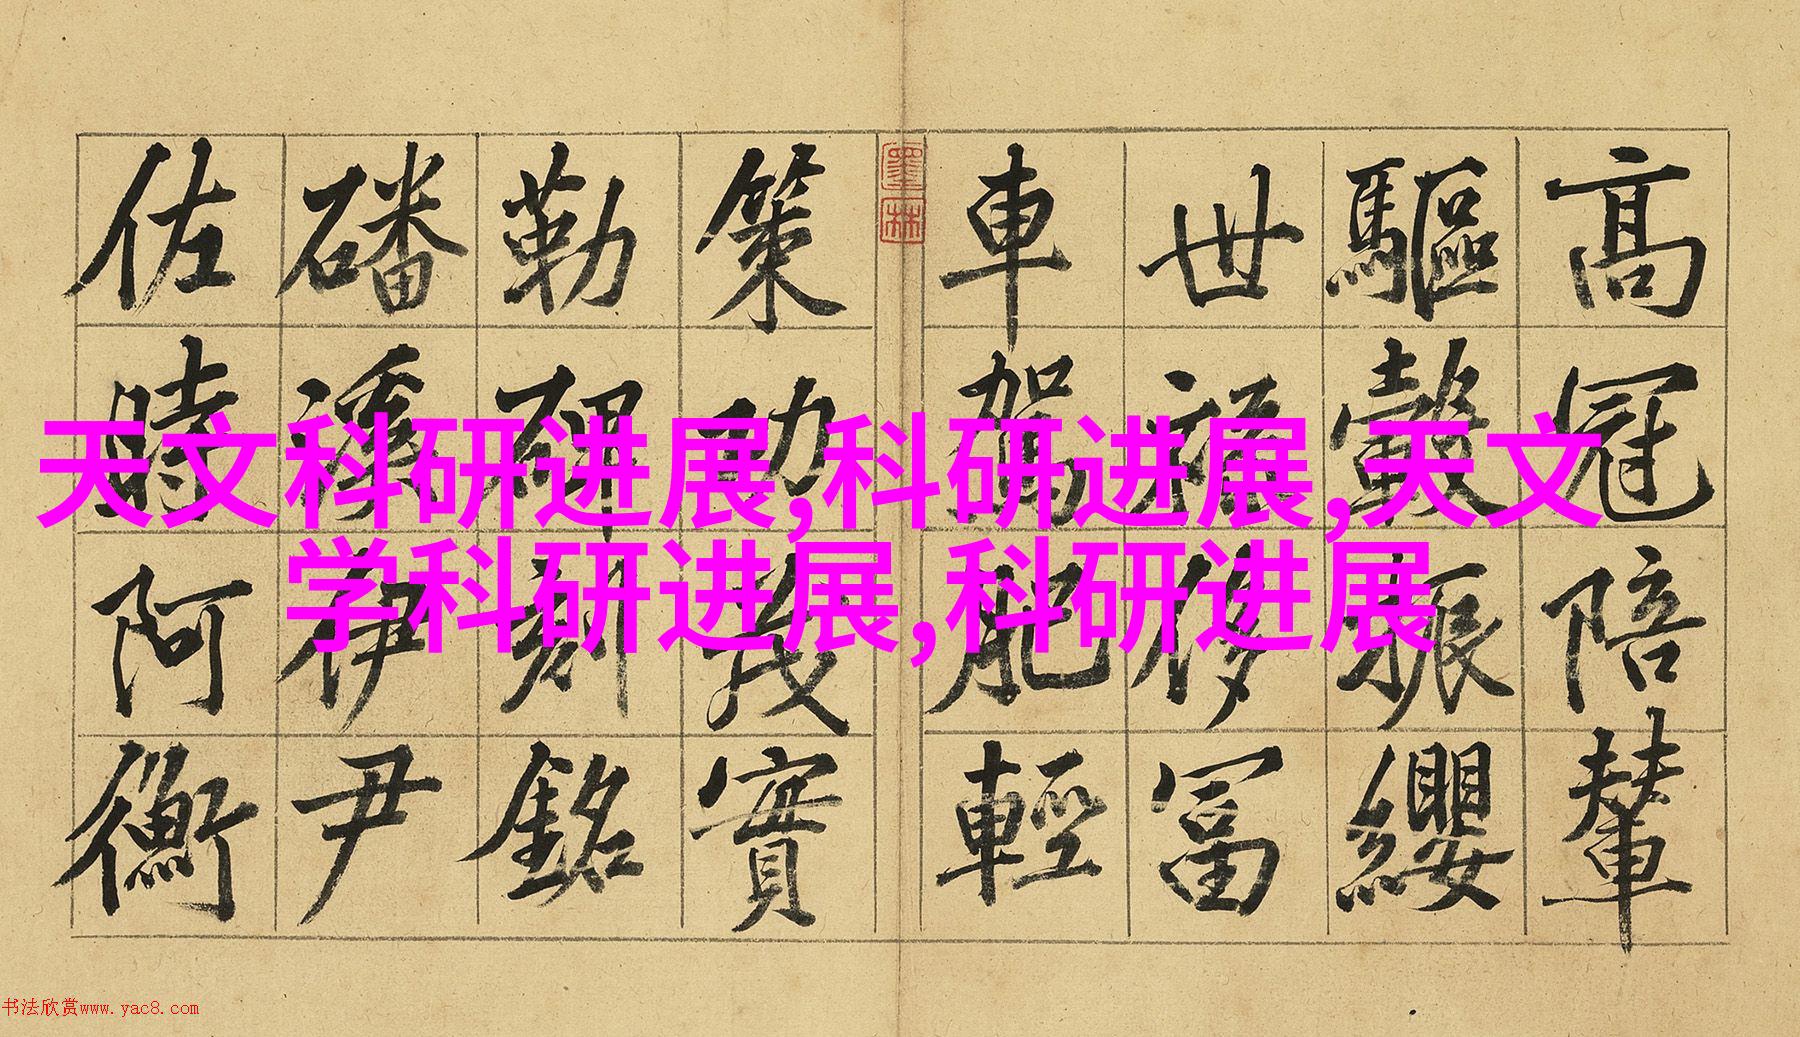 高冠陪輦
驅轂振纓
世祿侈富
車駕肥輕
策功茂實
勒碑刻銘
磻溪伊尹
佐時阿衡
墨林
天文科研进展,科研进展,天文
学科研进展,科研进展
书法欣赏www.yac8.com